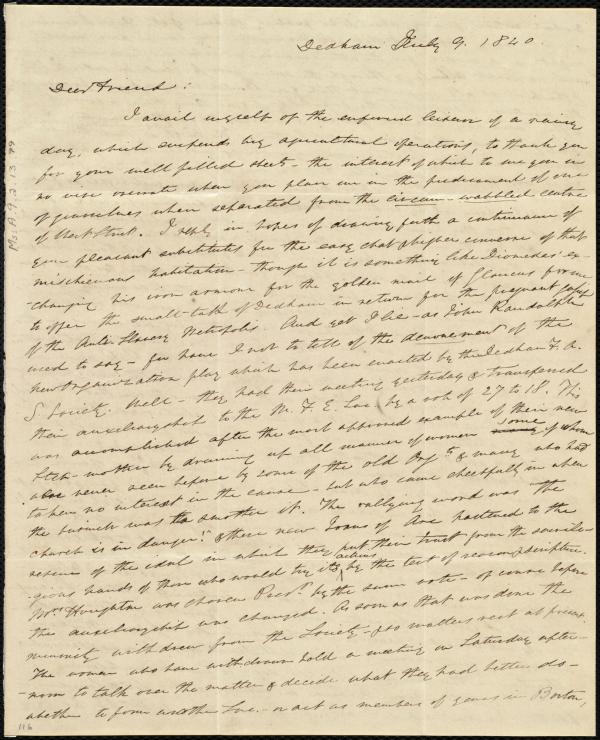 Dedham July 9. 1840.
Dear Friend:
I avail myself of the enforced leisure of a rainy
day, which suspends my agricultural operations, to thank you
for your well filled sheet - the interest of which to me you in
no wise overrate when you place me in the predicament of one
of yourselves when separated from the circum-wabbled centre
of West Street. I reply in hopes of drawing forth a continuance of
your pleasant substitutes for the easy chat & higher converse of that
mischievous habitation - though it is something like Diomedes' ex-
-changing his iron armour for the golden mail of Glaucus for me
to offer the small-talk of Dedham in return for the pregnant gossip
of the Anti Slavery Metropolis. And yet I lie - as John Randolph
used to say - for have I not to tell of the denouement of the
New Organization play which has been enacted by the Dedham F. A.
S. Society. Well - they had their meeting yesterday & transferred
their auxiliaryship to the M. F. E. Soc. by a vote of 27 to 18. This
was accomplished after the most approved example of their new
step-mother by drawing up all manner of women some of whom
were never seen before by some of the old Orgts & many who had
taken no interest in the cause - but who came cheerfully in when
the business was to smother it. The rallying word was "the
church is in danger!" & these new Joans of Arc hastened to the
rescue of the idol in which they put their trust from the sacrile-
-gious hands of those who would try its actions by the test of reason & scripture.
Mrs. Houghton was chosen Prest. by the same vote - of course before
the auxiliaryship was changed. As soon as that was done the
minority withdrew from the Society - & so matters rest at present.
The women who have withdrawn hold a meeting on Saturday after-
-noon to talk over the matter & decide what they had better do -
whether to form another Soc. - or act as members of yours in Boston,
Ms.A.9.2.13.49
116